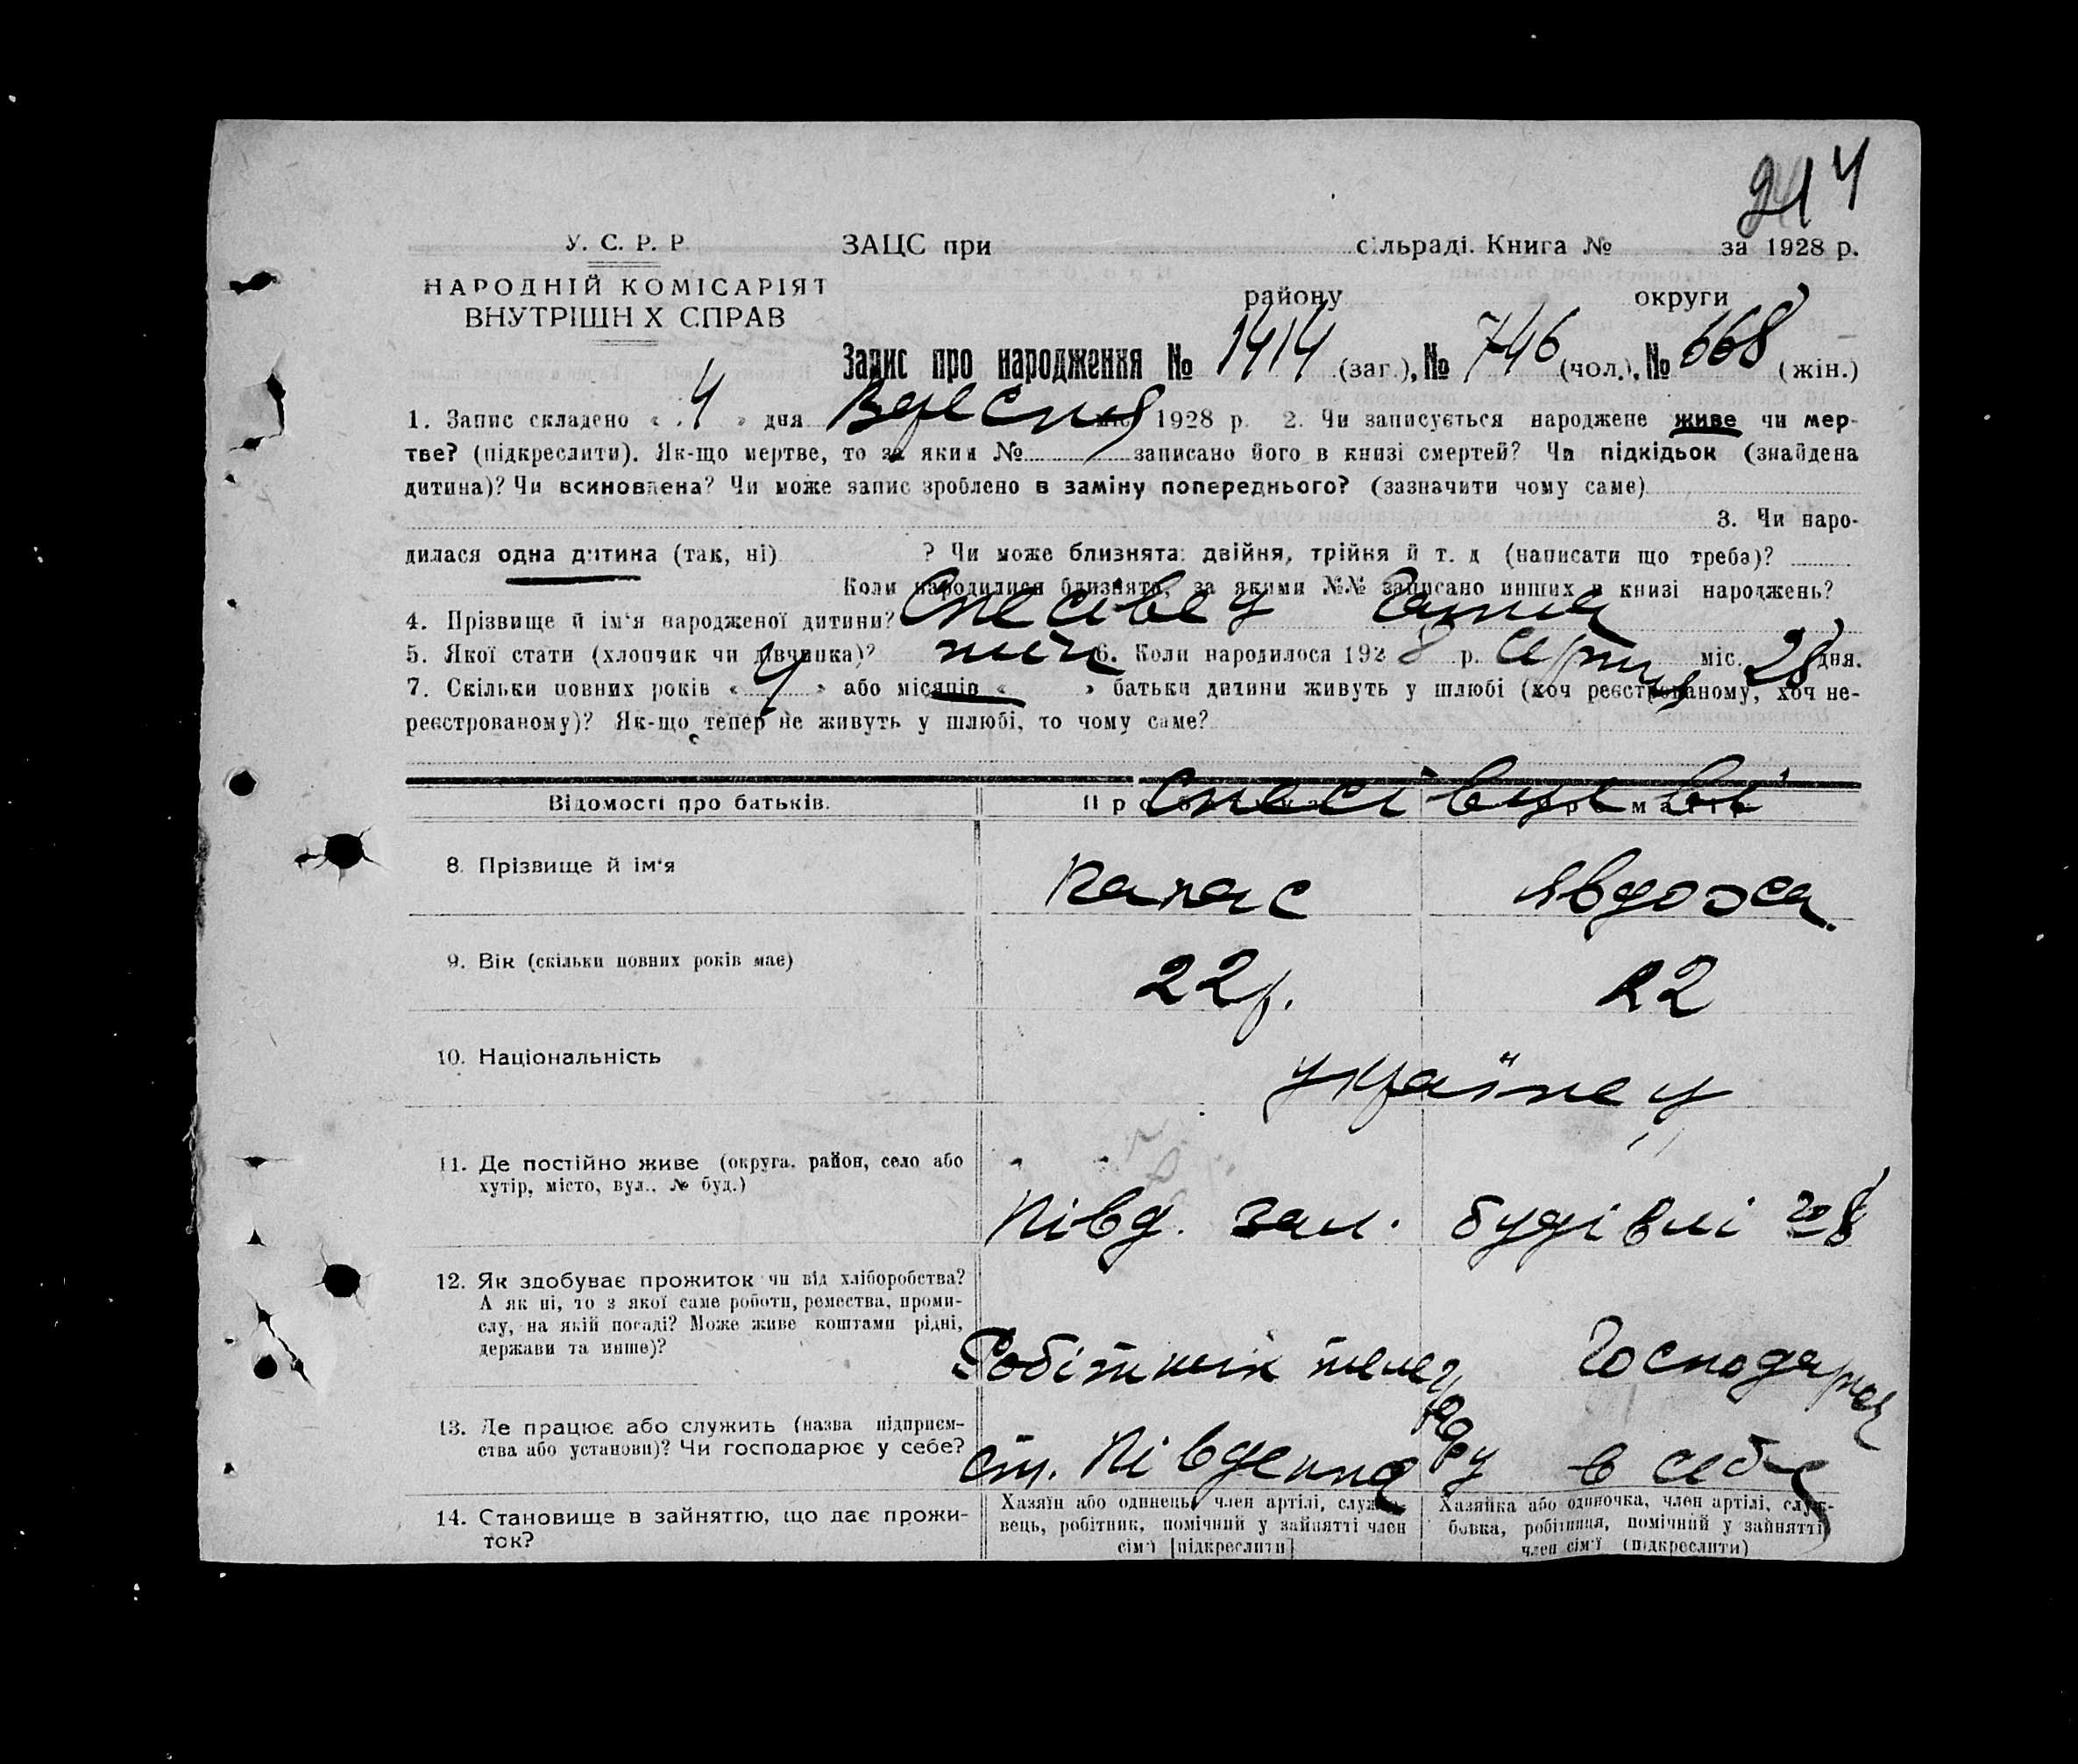 214
У. С. Р. Р. ЗАЦС при сільраді. Книга № за 1928 р.
НАРОДНІЙ КОМІСАРІЯТ
ВНУТРІШН Х СПРАВ
району округи
Запис про народження № 1414 (заг.), № 746 (чол.), № 668 (жін.)
1. Запис складено « 4 » дня Вересня міс. 1928 р. 2. Чи записується народжене живе чи мер-
тве? (підкреслити). Як-що мертве, то за яким № записано його в книзі смертей? Чи підкідьок (знайдена
дитина)? Чи всиновлена? Чи може запис зроблено в заміну попереднього? (зазначити чому саме)
3. Чи наро-
дилася одна дитина (так, ні) ? Чи може близнята: двійня, трійня й т. д (написати що треба)?
Коли народилися близнята, за якими №№ записано инших в книзі народжень?
4. Прізвище й ім'я народженої дитини? Спесівец
5. Якої стати (хлопчик чи дівчинка)? 6. Коли народилося 1928 р. Серпня міс. 28 дня.
7. Скільки повних років « 4 » або місяців « » батьки дитини живуть у шлюбі (хоч реєстрованому, хоч не-
реєстрованому)? Як-що тепер не живуть у шлюбі, то чому саме?
Відомості про батьків. Про батька Про матір
Спесівцеві
8. Прізвище й ім'я Панас Явдоха
9. Вік (скільки повних років має) 22 р. 22
10. Національність українец
11. Де постійно живе (округа, район, село або
хутір, місто, вул., № буд.)
Півд. зал. будівлі 28
12. Як здобуває прожиток чи від хліборобства?
А як ні, то з якої саме роботи, ремества, проми-
слу, на якій посаді? Може живе коштами рідні,
держави та инше)?
Робітник телеграфу Господарка
13. Де працює або служить (назва підприєм-
ства або установи)? Чи господарює у себе?
ст. Південна в себе
14. Становище в зайняттю, що дає прожи-
ток?
Хазяїн або одинець, член артілі, службо-
вець, робітник, помічний у зайнятті член
сім'ї [підкреслити]
Хазяйка або одиночка, член артілі, служ-
бовка, робітниця, помічний у зайнятті
член сім'ї (підкреслити)